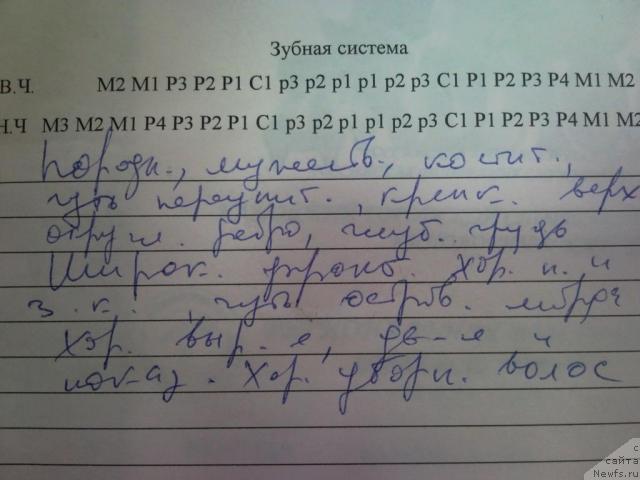 Зубная система
В.Ч. M2 M1 P3 P2 P1 C1 p3 p2 p1 p1 p2 p3 C1 P1 P2 P3 P4 M1 M2
Н.Ч M3 M2 M1 P4 P3 P2 P1 C1 p3 p2 p1 p1 p2 p3 C1 P1 P2 P3 P4 M1 M2
Породн., мужеств., костит.,
чуть переупит., крепк. верх
округл. ребро, глуб. грудь
Широк. Хор. п. и
з. к., чуть остров. морда
Хор. выр-е, дв-я и
показ. Хор. уборн. волос
с
сайта
Newfs.ru